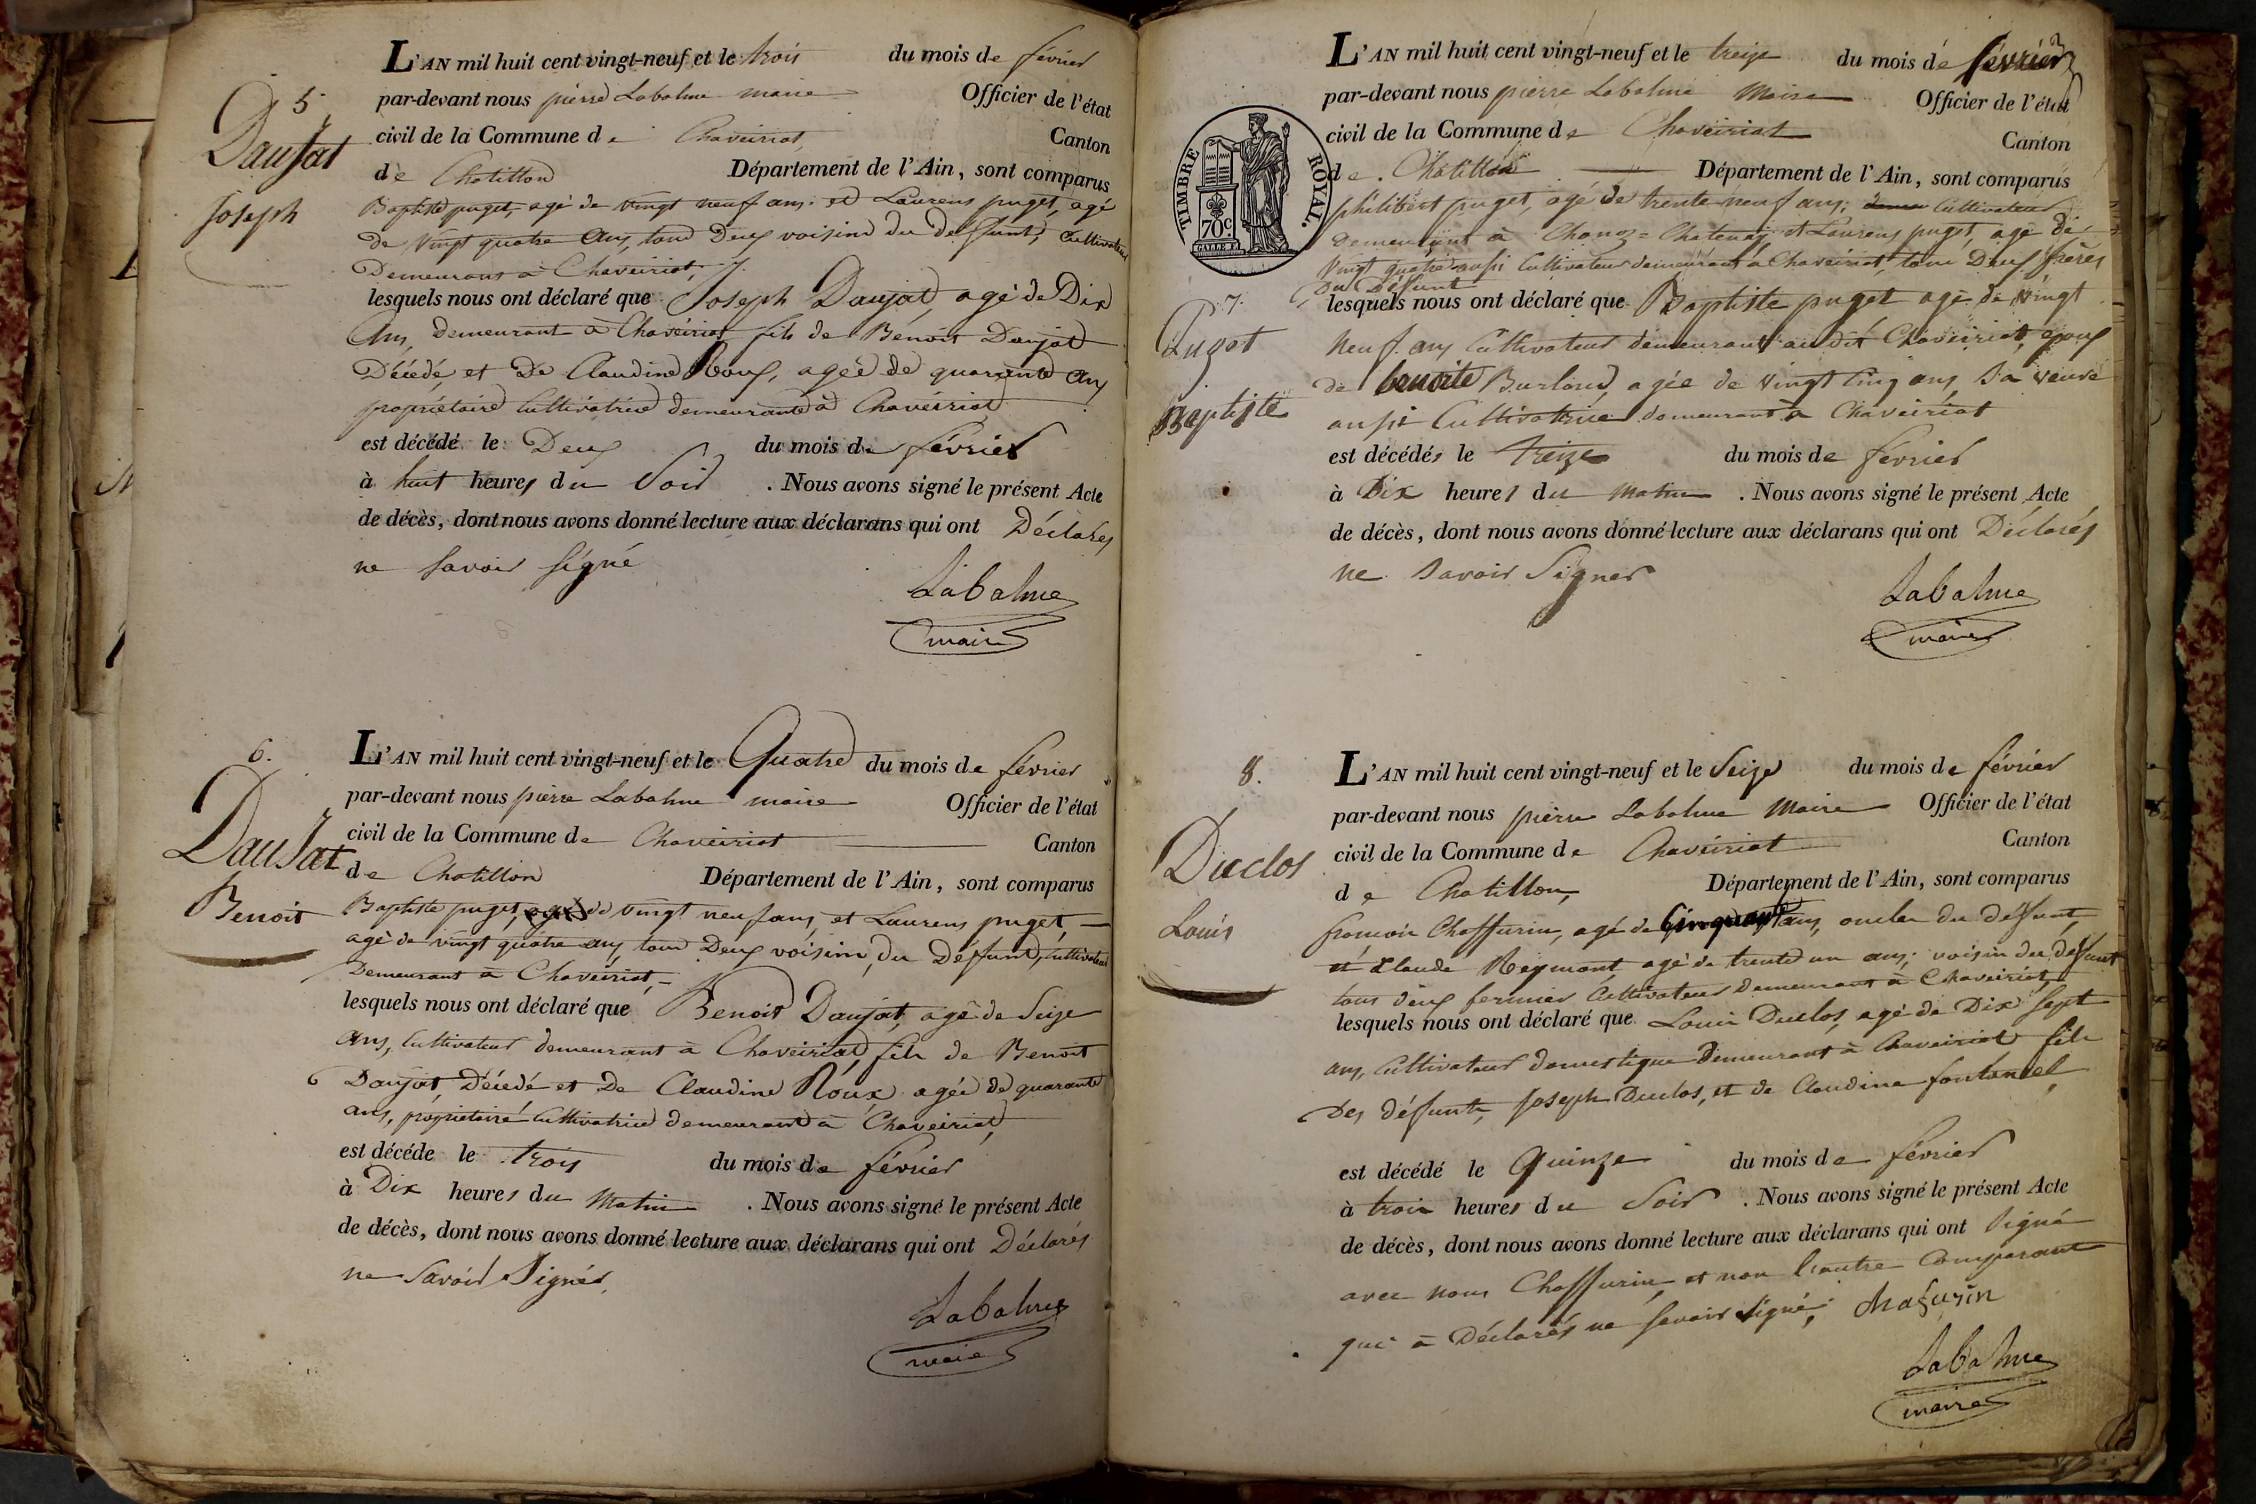 5.
Daujat
Joseph
L'AN mil huit cent vingt-neuf et le trois du mois de février
par-devant nous pierre Labalme maire Officier de l'état
civil de la Commune de Chaveiriat, Canton
de Chatillon Département de l'Ain, sont comparus
Baptiste puget, agé de vingt neuf ans. et Laurens puget, agé
de vingt quatre ans, tous Deux voisins du defunt, Cultivateurs
Demeurans à Chaveiriat,
lesquels nous ont déclaré que Joseph Daujat, agé de Dix
Ans, Demeurant à Chaveiriat fils de Bénoit Daujat
Décédé, et De Claudine Roux, agée de quarante ans
propriétaire Cultivatrice demeurante à Chaveiriat
est décédé le Deux du mois de février
à huit heures du Soir . Nous avons signé le présent Acte
de décès, dont nous avons donné lecture aux déclarans qui ont Déclarés
ne savoir signé
Labalme
maire
6.
Daujat
Benoit
L'AN mil huit cent vingt-neuf et le Quatre du mois de février
par-devant nous pierre Labalme maire Officier de l'état
civil de la Commune de Chaveiriat Canton
de Chatillon Département de l'Ain, sont comparus
Baptiste puget, agé de vingt neuf ans, et Laurens puget,
agé de vingt quatre ans, tous Deux voisins, du Défunt, Cultivateurs
Demeurant à Chaveiriat,
lesquels nous ont déclaré que Benoit Daujat, agé de Seize
ans, Cultivateur demeurant à Chaveiriat, fils de Benoit
Daujat, Décédé et De Claudine Roux agée de quarante
ans, propriétaire Cultivatrice demeurante à Chaveiriat,
est décéde le trois du mois de février
à Dix heures du Matin . Nous avons signé le présent Acte
de décès, dont nous avons donné lecture aux déclarans qui ont Déclarés
ne Savoir Signés,
Labalme
maire
TIMBRE ROYAL.
70c
7.
Puget
Baptiste
L'AN mil huit cent vingt-neuf et le treize du mois de février
par-devant nous pierre Labalme Maire Officier de l'état
civil de la Commune de Chaveiriat Canton
de Chatillon Département de l'Ain, sont comparus
philibert puget, agé de trente neuf ans; Cultivateur
Demeurant à Chanoz=Chatenay et Laurens puget, agé de
vingt quatre aussi Cultivateur demeurant à Chaveiriat, tous Deux frères
Du Défunt
lesquels nous ont déclaré que Baptiste puget agé de vingt
neuf ans Cultivateur demeurant au dit Chaveiriat, epoux
de benoite Burloud, agée de vingt cinq ans, sa veuve
aussi Cultivatrice demeurant à Chaveiriat
est décédés le treize du mois de février
à Dix heures du matin . Nous avons signé le présent Acte
de décès, dont nous avons donné lecture aux déclarans qui ont Déclarés
ne savoir Signer
Labalme
maire
8.
Duclos
Louis
L'AN mil huit cent vingt-neuf et le Seize du mois de février
par-devant nous pierre Labalme Maire Officier de l'état
civil de la Commune de Chaveiriat Canton
de Chatillon, Département de l'Ain, sont comparus
françois Chaffurin, agé de Cinquante ans, oncle du défunt,
et Claude Reymont agé de trente un ans; voisin du défunt
tous deux fermier Cultivateur Demeurant à Chaveiriat,
lesquels nous ont déclaré que Louis Duclos, agé de Dix Sept
ans, Cultivateur domestique Demeurant à Chaveiriat fils
Des défunts, Joseph Duclos, et de Claudine fontanel
est décédé le Quinze du mois de février
à trois heures du Soir . Nous avons signé le présent Acte
de décès, dont nous avons donné lecture aux déclarans qui ont Signé
avec nous Chaffurin, et non l'autre Comparant
qui à Déclarés ne savoir signé; Chafurin
Labalme
maire